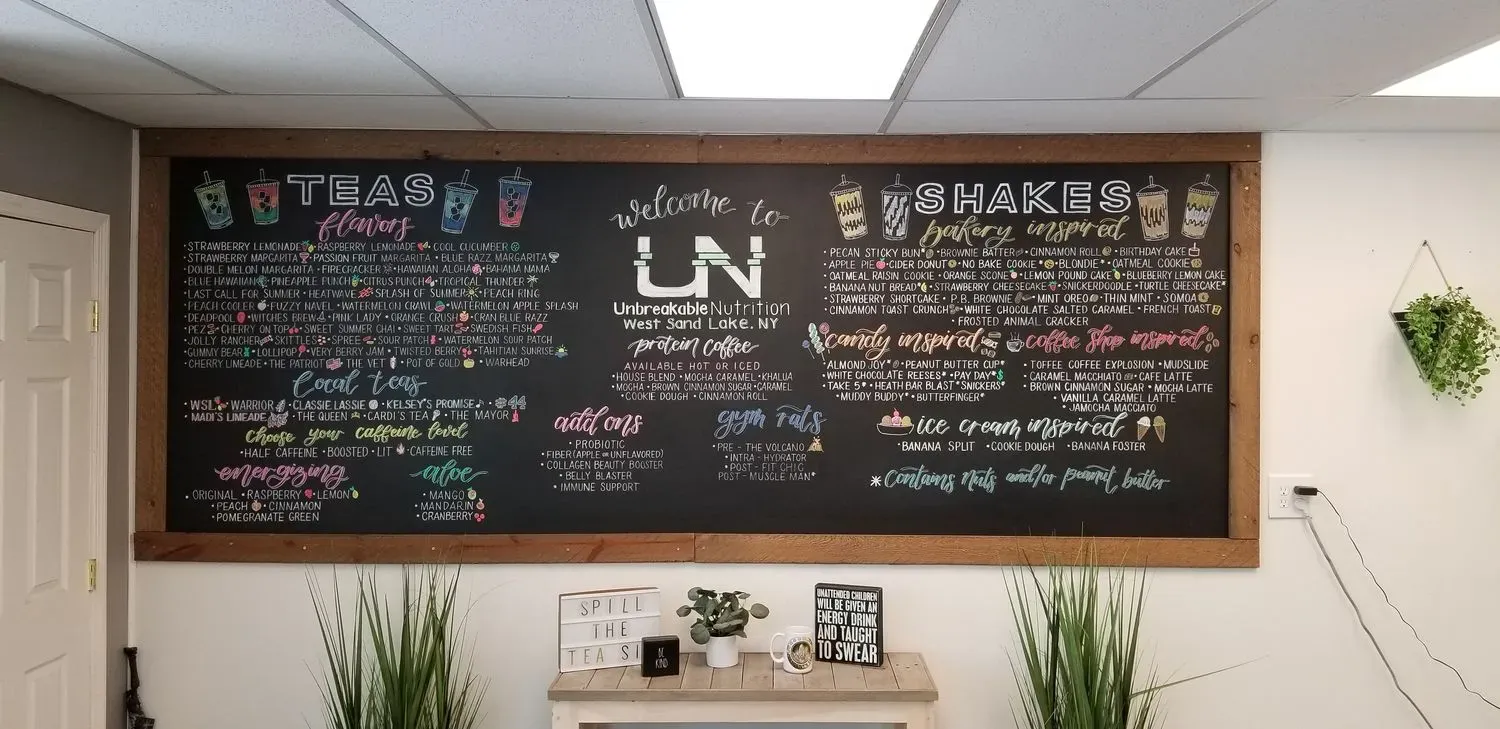 TEAS
flavors
• STRAWBERRY LEMONADE • RASPBERRY LEMONADE • COOL CUCUMBER
• STRAWBERRY MARGARITA • PASSION FRUIT MARGARITA • BLUE RAZZ MARGARITA
• DOUBLE MELON MARGARITA • FIRECRACKER • HAWAIIAN ALOHA • BAHAMA MAMA
• BLUE HAWAIIAN • PINEAPPLE PUNCH • CITRUS PUNCH • TROPICAL THUNDER
• LAST CALL FOR SUMMER • HEATWAVE • SPLASH OF SUMMER • PEACH RING
• PEACH COOLER • FUZZY NAVEL • WATERMELON CRAWL • WATERMELON APPLE SPLASH
• DEADPOOL • WITCHES BREW • PINK LADY • ORANGE CRUSH • CRAN BLUE RAZZ
• PEZ • CHERRY ON TOP • SWEET SUMMER CHAI • SWEET TART • SWEDISH FISH
• JOLLY RANCHER • SKITTLES • SPREE • SOUR PATCH • WATERMELON SOUR PATCH
• GUMMY BEAR • LOLLIPOP • VERY BERRY JAM • TWISTED BERRY • TAHITIAN SUNRISE
• CHERRY LIMEADE • THE PATRIOT • THE VET • POT OF GOLD • WARHEAD
local teas
WSL • WARRIOR • CLASSIE LASSIE • KELSEY'S PROMISE • #44
• MADI'S LIMEADE • THE QUEEN • CARDI'S TEA • THE MAYOR
choose your caffeine level
• HALF CAFFEINE • BOOSTED • LIT • CAFFEINE FREE
energizing
• ORIGINAL • RASPBERRY • LEMON
• PEACH • CINNAMON
• POMEGRANATE GREEN
aloe
• MANGO
• MANDARIN
• CRANBERRY
welcome to
UN
Unbreakable Nutrition
West Sand Lake, NY
protein coffee
AVAILABLE HOT OR ICED
• HOUSE BLEND • MOCHA CARAMEL • KHALUA
• MOCHA • BROWN CINNAMON SUGAR • CARAMEL
• COOKIE DOUGH • CINNAMON ROLL
add ons
• PROBIOTIC
• FIBER (APPLE OR UNFLAVORED)
• COLLAGEN BEAUTY BOOSTER
• BELLY BLASTER
• IMMUNE SUPPORT
gym rats
PRE - THE VOLCANO
• INTRA - HYDRATOR
• POST - FIT CHIC
POST - MUSCLE MAN*
SHAKES
bakery inspired
• PECAN STICKY BUN* • BROWNIE BATTER • CINNAMON ROLL • BIRTHDAY CAKE
• APPLE PIE • CIDER DONUT • NO BAKE COOKIE* • BLONDIE* • OATMEAL COOKIE
• OATMEAL RAISIN COOKIE • ORANGE SCONE • LEMON POUND CAKE • BLUEBERRY LEMON CAKE
• BANANA NUT BREAD* • STRAWBERRY CHEESECAKE • SNICKERDOODLE • TURTLE CHEESECAKE*
• STRAWBERRY SHORTCAKE • P.B. BROWNIE • MINT OREO • THIN MINT • SOMOA
• CINNAMON TOAST CRUNCH • WHITE CHOCOLATE SALTED CARAMEL • FRENCH TOAST
• FROSTED ANIMAL CRACKER
candy inspired
• ALMOND JOY* • PEANUT BUTTER CUP*
• WHITE CHOCOLATE REESES* • PAY DAY*
• TAKE 5* • HEATH BAR BLAST* SNICKERS*
• MUDDY BUDDY* • BUTTERFINGER*
coffee shop inspired
• TOFFEE COFFEE EXPLOSION • MUDSLIDE
• CARAMEL MACCHIATO • CAFE LATTE
• BROWN CINNAMON SUGAR • MOCHA LATTE
• VANILLA CARAMEL LATTE
• JAMOCHA MACCIATO
ice cream inspired
• BANANA SPLIT • COOKIE DOUGH • BANANA FOSTER
* Contains nuts and/or peanut butter
SPILL
THE
TEA
BE
KIND
UNATTENDED CHILDREN
WILL BE GIVEN AN
ENERGY DRINK
AND TAUGHT
TO SWEAR